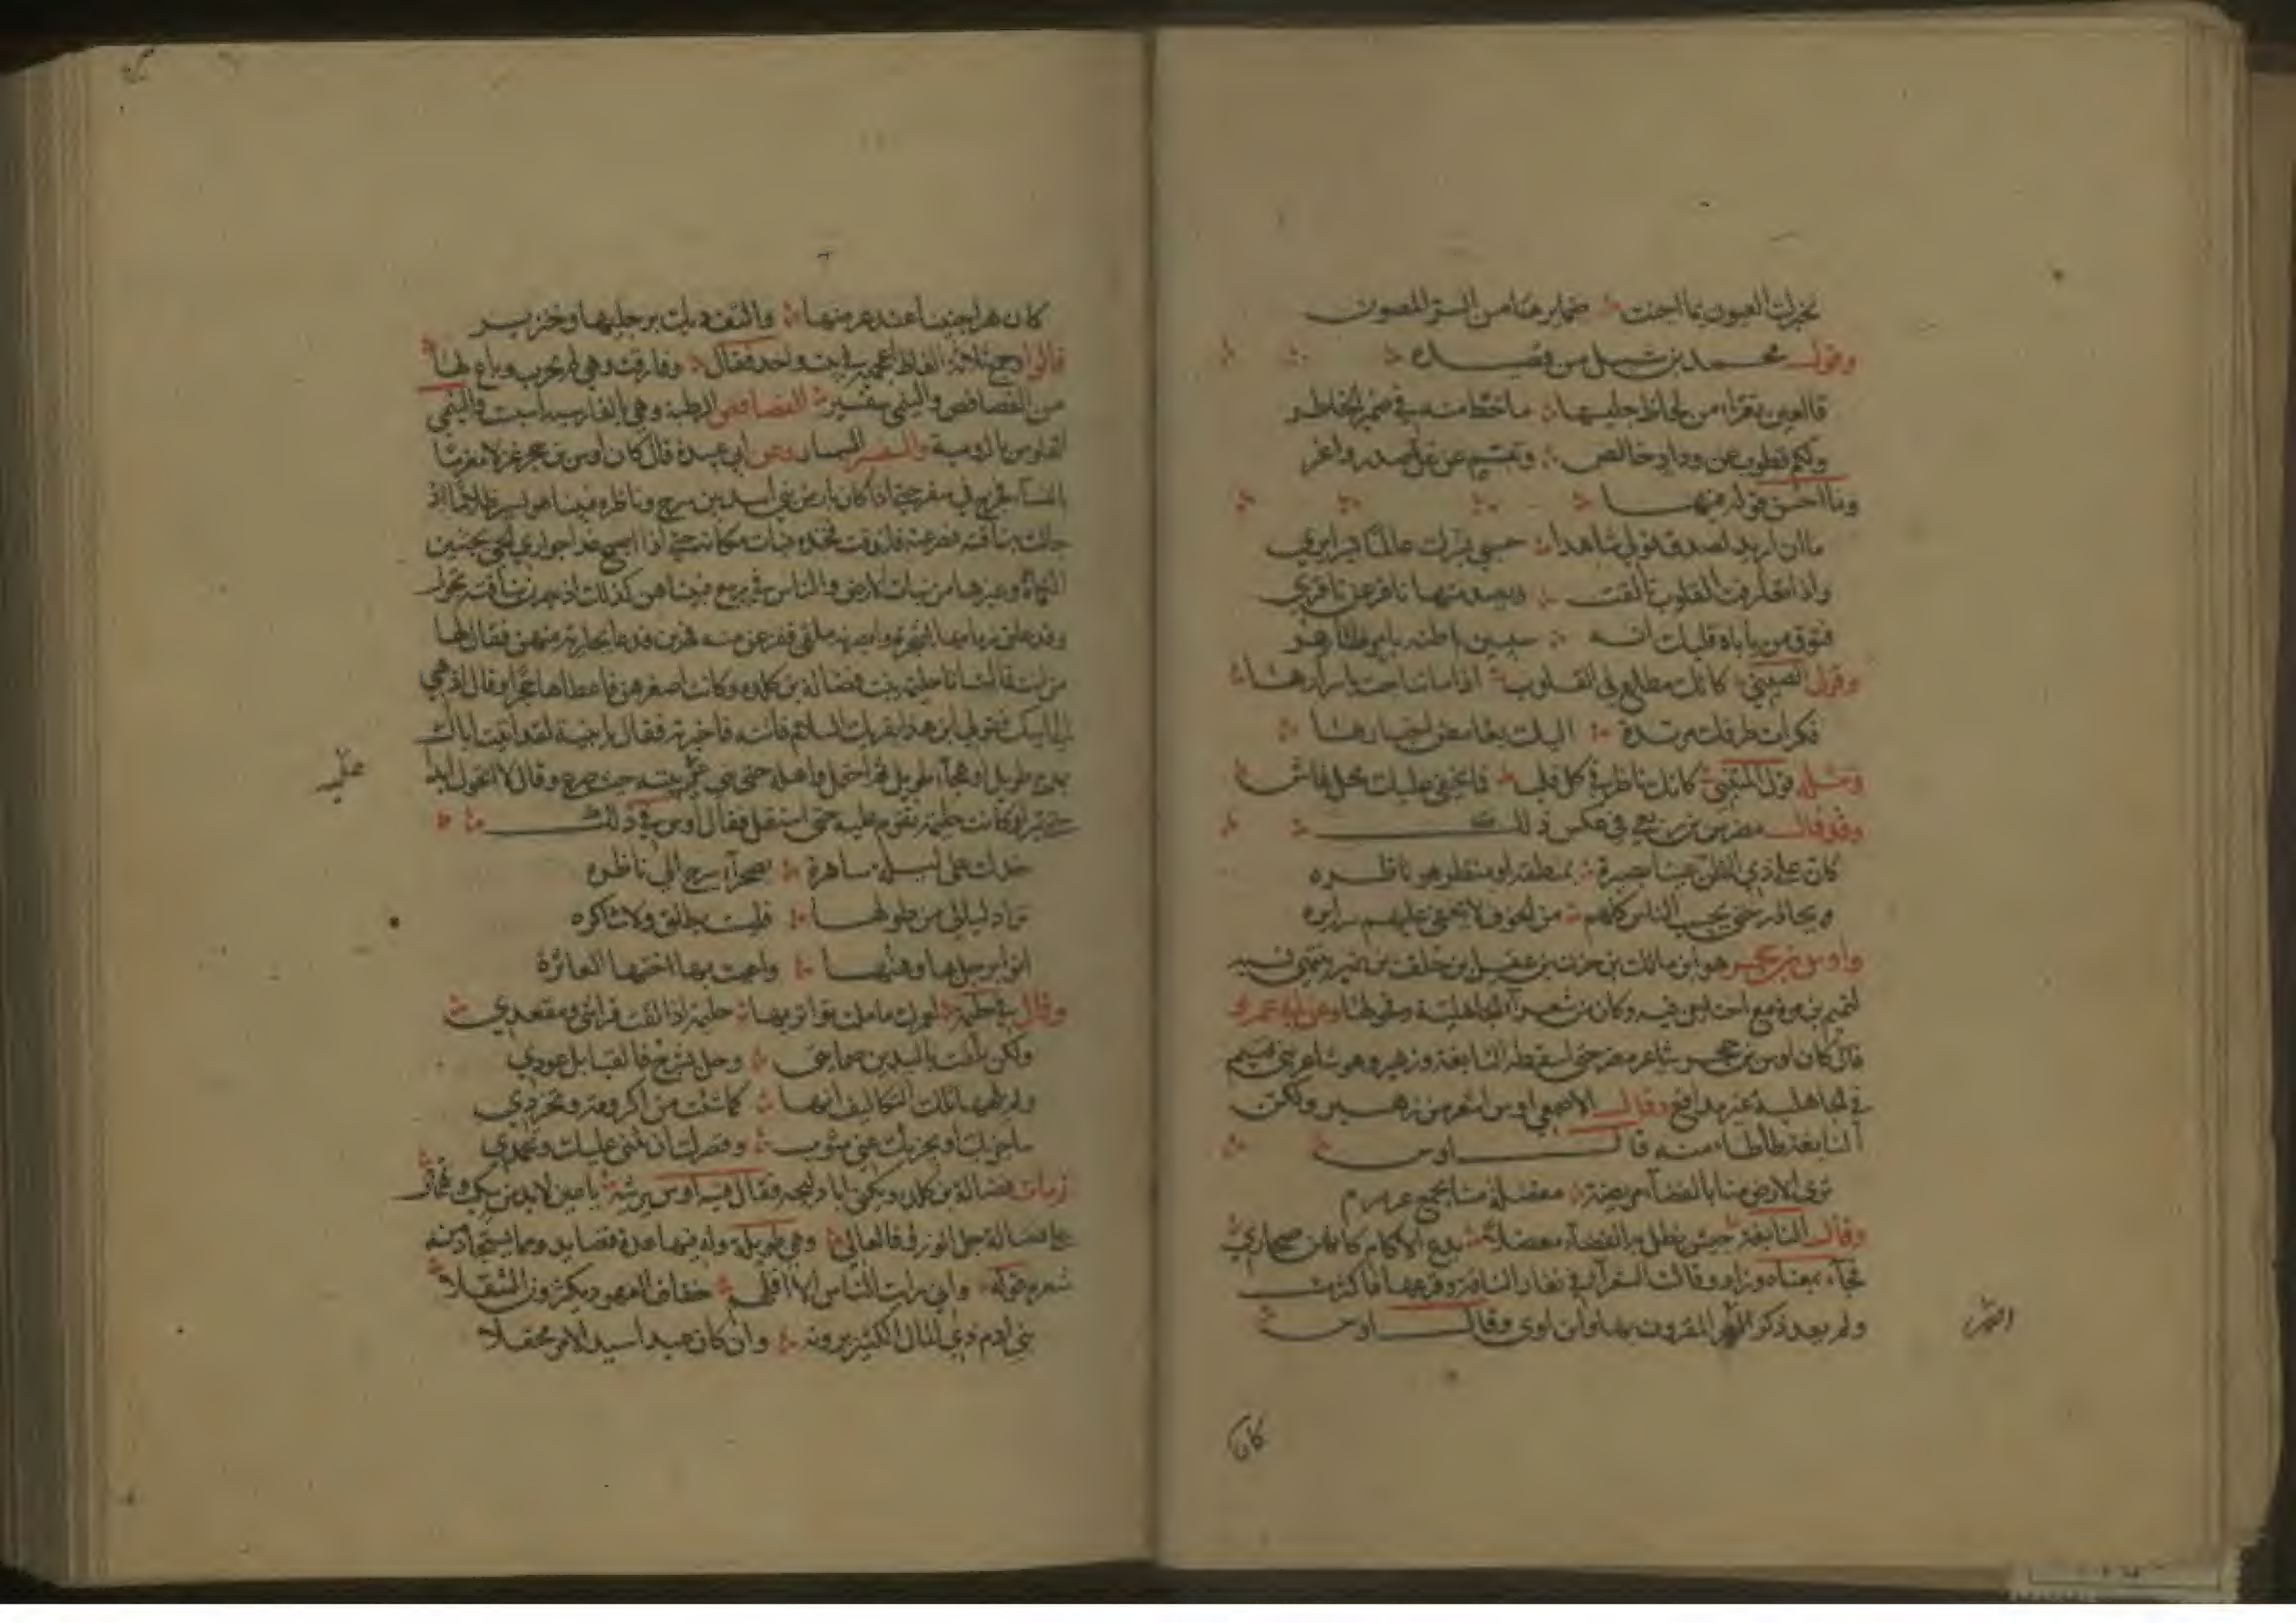 تخبرك العيون بما اجنت ضمايرها من السر المصون
وقول محمد بن شبل من قصيدة
فالعين تقراء من لحاظ جليسها ما خط منه في ضمير الخاطر
ولكم قطوب عن وداد خالص وتبسم عن غل صدر واغر
وما احسن قوله منها
ما ان اريد لصدق قولي شاهدا حسبي بسرك عالما بسرايري
واذا تعارفت القلوب تالفت ويصد منها نافر عن نافر
فتوق من ياباه قلبك انه سيبين باطنه بامر ظاهر
وقول كانك مطلع في القلوب اذا ما تناجت باسرارها
فكرات طرفك مرتدة اليك بغامض اخبارها
ومثله قول المتنبي كانك ناظر في كل قلب فما يخفى عليك محل غاش
وقد قال مضرس بن ربعي في عكس ذلك
كان على ذي الظن عينا بصيرة بمنطقه او منظر هو ناظره
يحاذر حتى يحسب الناس كلهم من الخوف لا تخفى عليهم سرايره
واوس بن حجر هو ابن مالك بن حزن بن عقيل بن خلف بن نمير ينتهي نسبه
لتميم بن مر وكان من شعرآ الجاهلية وفحولها وعن ابي عمرو
قال كان اوس بن حجر شاعر مضر حتى اسقطه النابغة وزهير وهو شاعر بني تميم
في الجاهلية غير مدافع وقال الاصمعي اوس اشعر من زهير ولكن
النابغة طاطاء منه قال اوس
ترى الارض منا بالفضآء مريضة معضلة منا بجمع عرمرم
وقال النابغة جيش يظل به الفضآء معضلا يدع الاكام كانهن صحاري
فجآء بمعناه وزاد وقالت الشعرآء في نفار الناقة وفزعها فاكثرت
ولم يعد ذكر الهر المقرون بها وابن اوى وقال اوس
كان
كان هرا جنيبا عند غرضتها والتف ديك برجليها وخنزير
قالوا وجمع ثلاثة الفاظ اعجمية في بيت واحد فقال وفارقت وهي لم تجرب وباع لها
من الفصافص والنمي سفسير الفصافص الرطبة وهي بالفارسية اسبست والنمي
الفلوس بالرومية والسفسير السمسار وعن ابي عبيدة قال كان اوس بن حجر غزلا مغرما
بالنسآء فخرج في سفر حتى اذا كان بارض بني اسد بين شرج وناظرة فبينا هو يسير ظلاما اذ
جالت به ناقته فصرعته فاندقت فخذه فبات مكانه حتى اذا اصبح غدا جواري الحي يجتنين
الكماة وغيرها من نبات الارض والناس في ربيع فبينا هن كذلك اذ بصرن بناقته تجول
وقد علق زمامها بشجرة وابصرنه ملقى ففزعن منه فهربن فدعا بجارية منهن فقال لها
من انت قالت انا حليمة بنت فضالة بن كلدة وكانت اصغرهن فاعطاها حجرا وقال اذهبي
الى ابيك فقولي ابن هذا يقريك السلام فاتته فاخبرته فقال يا بنية لقد اتيت اباك
بمدح طويل او هجآء طويل ثم احتمل واهله حتى بنى عليه بيته حيث صرع وقال لا اتحول ابدا
حتى تبراء وكانت حليمة تقوم عليه حتى استقل فقال اوس في ذلك
خذلت على ليلة ساهره بصحرآء شرج الى ناظره
تزاد ليالي من طولها فليست بطلق ولا ساكره
انوء برجل بها وهنها واعيت بها اختها العاثرة
وقال في حليمة لعمرك ما ملت ثوآء ثويها حليمة اذ القت مراسي مقعدي
ولكن تلقت باليدين ضمانتي وحل بفلج فالقنافذ عودي
ولم تلهها تلك التكاليف انها كما شئت من اكرومة وتخرد
ساجزيك او يجزيك عني مثوب وقصرك ان يثنى عليك وتحمدي
ثم مات فضالة بن كلدة ويكنى ابا دليجة فقال فيه اوس يرثيه يا عين لا بد من سكب وتهمال
على فضالة جل الرزء والعالي وهي طويلة وله فيها عدة قصايد ومما يستجاد من
شعره قوله واني رايت الناس الا اقلهم خفاف العهود يكثرون التنقلا
بني ام ذي المال الكثير يرونه وان كان عبدا سيد الامر جحفلا